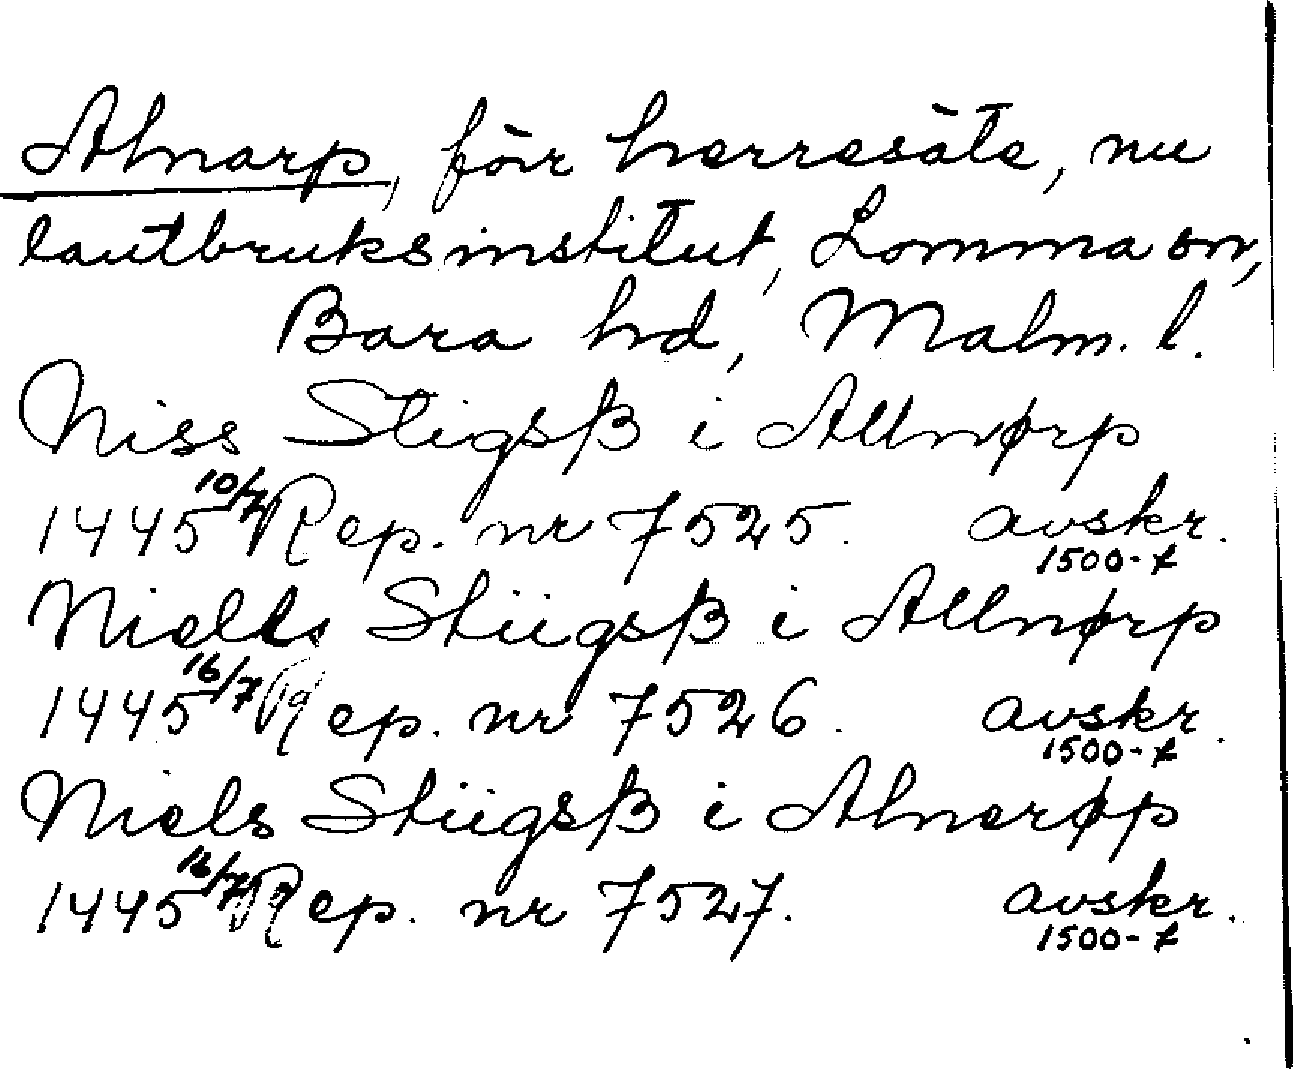 Alnarp, förr herresäte, nu
lantbruksinstitut, Lomma sn,
Bara hd, Malm. l.
Niss Stigsß i Allnørp
1445 10/7 Rep. nr 7525. avskr.
1500-t
Niells Stiigsß i Allnørp
1445 16/7 Rep. nr 7526. avskr.
1500-t
Niels Stiigsß i Alnerøp
1445 16/7 Rep. nr 7527. avskr.
1500-t